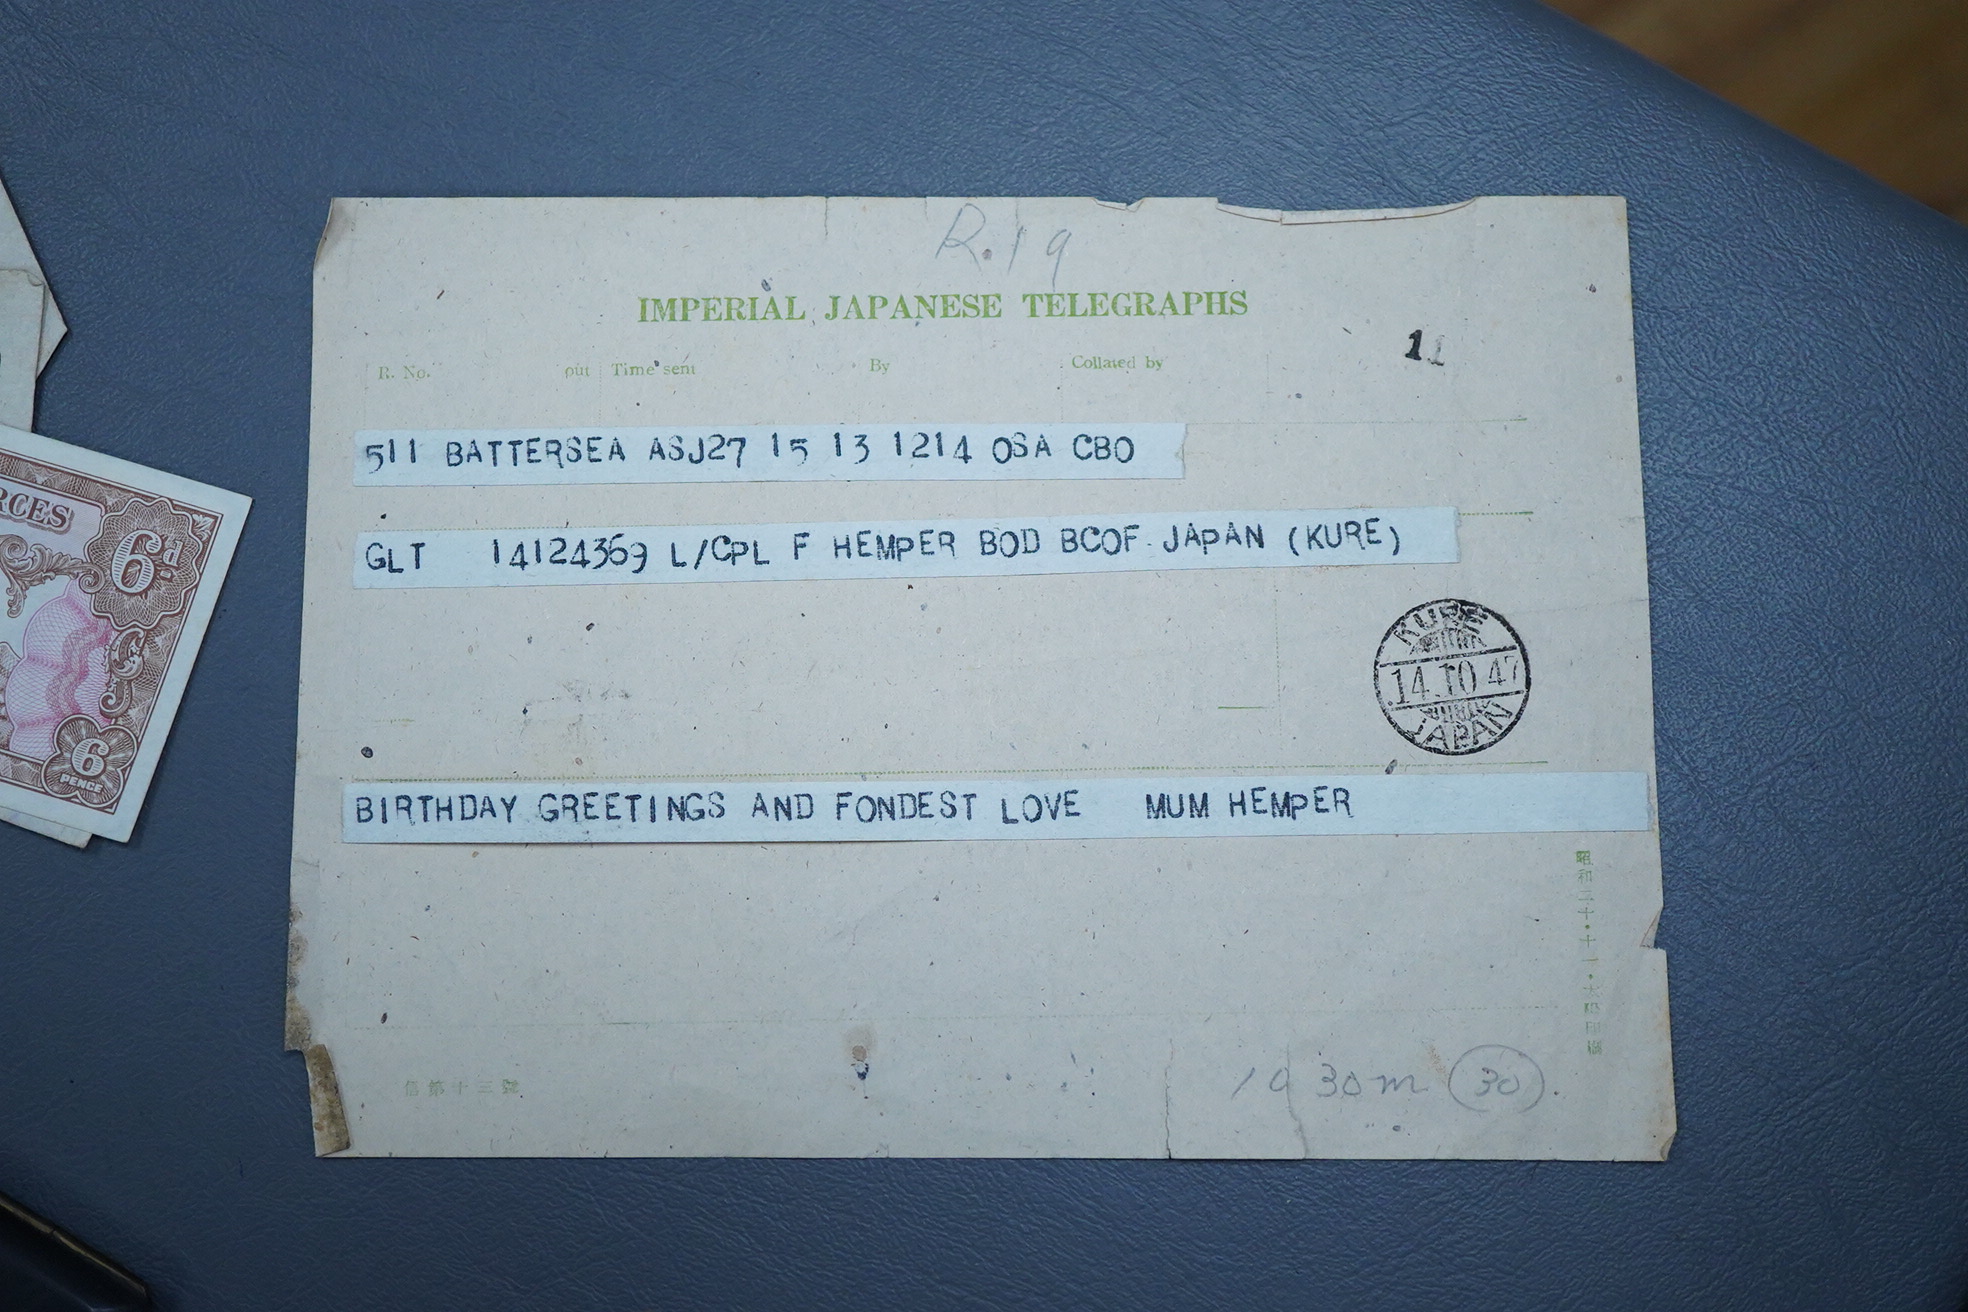 R.19
IMPERIAL JAPANESE TELEGRAPHS
R. No. out Time sent By Collated by
11
511 BATTERSEA ASJ27 15 13 1214 OSA CBO
GLT 14124369 L/CPL F HEMPER BOD BCOF JAPAN (KURE)
KURE
14.10 47
JAPAN
BIRTHDAY GREETINGS AND FONDEST LOVE MUM HEMPER
昭和二十・十一・大阪印刷
信第十三號
30m (30).
RCES
6d
6
PENCE